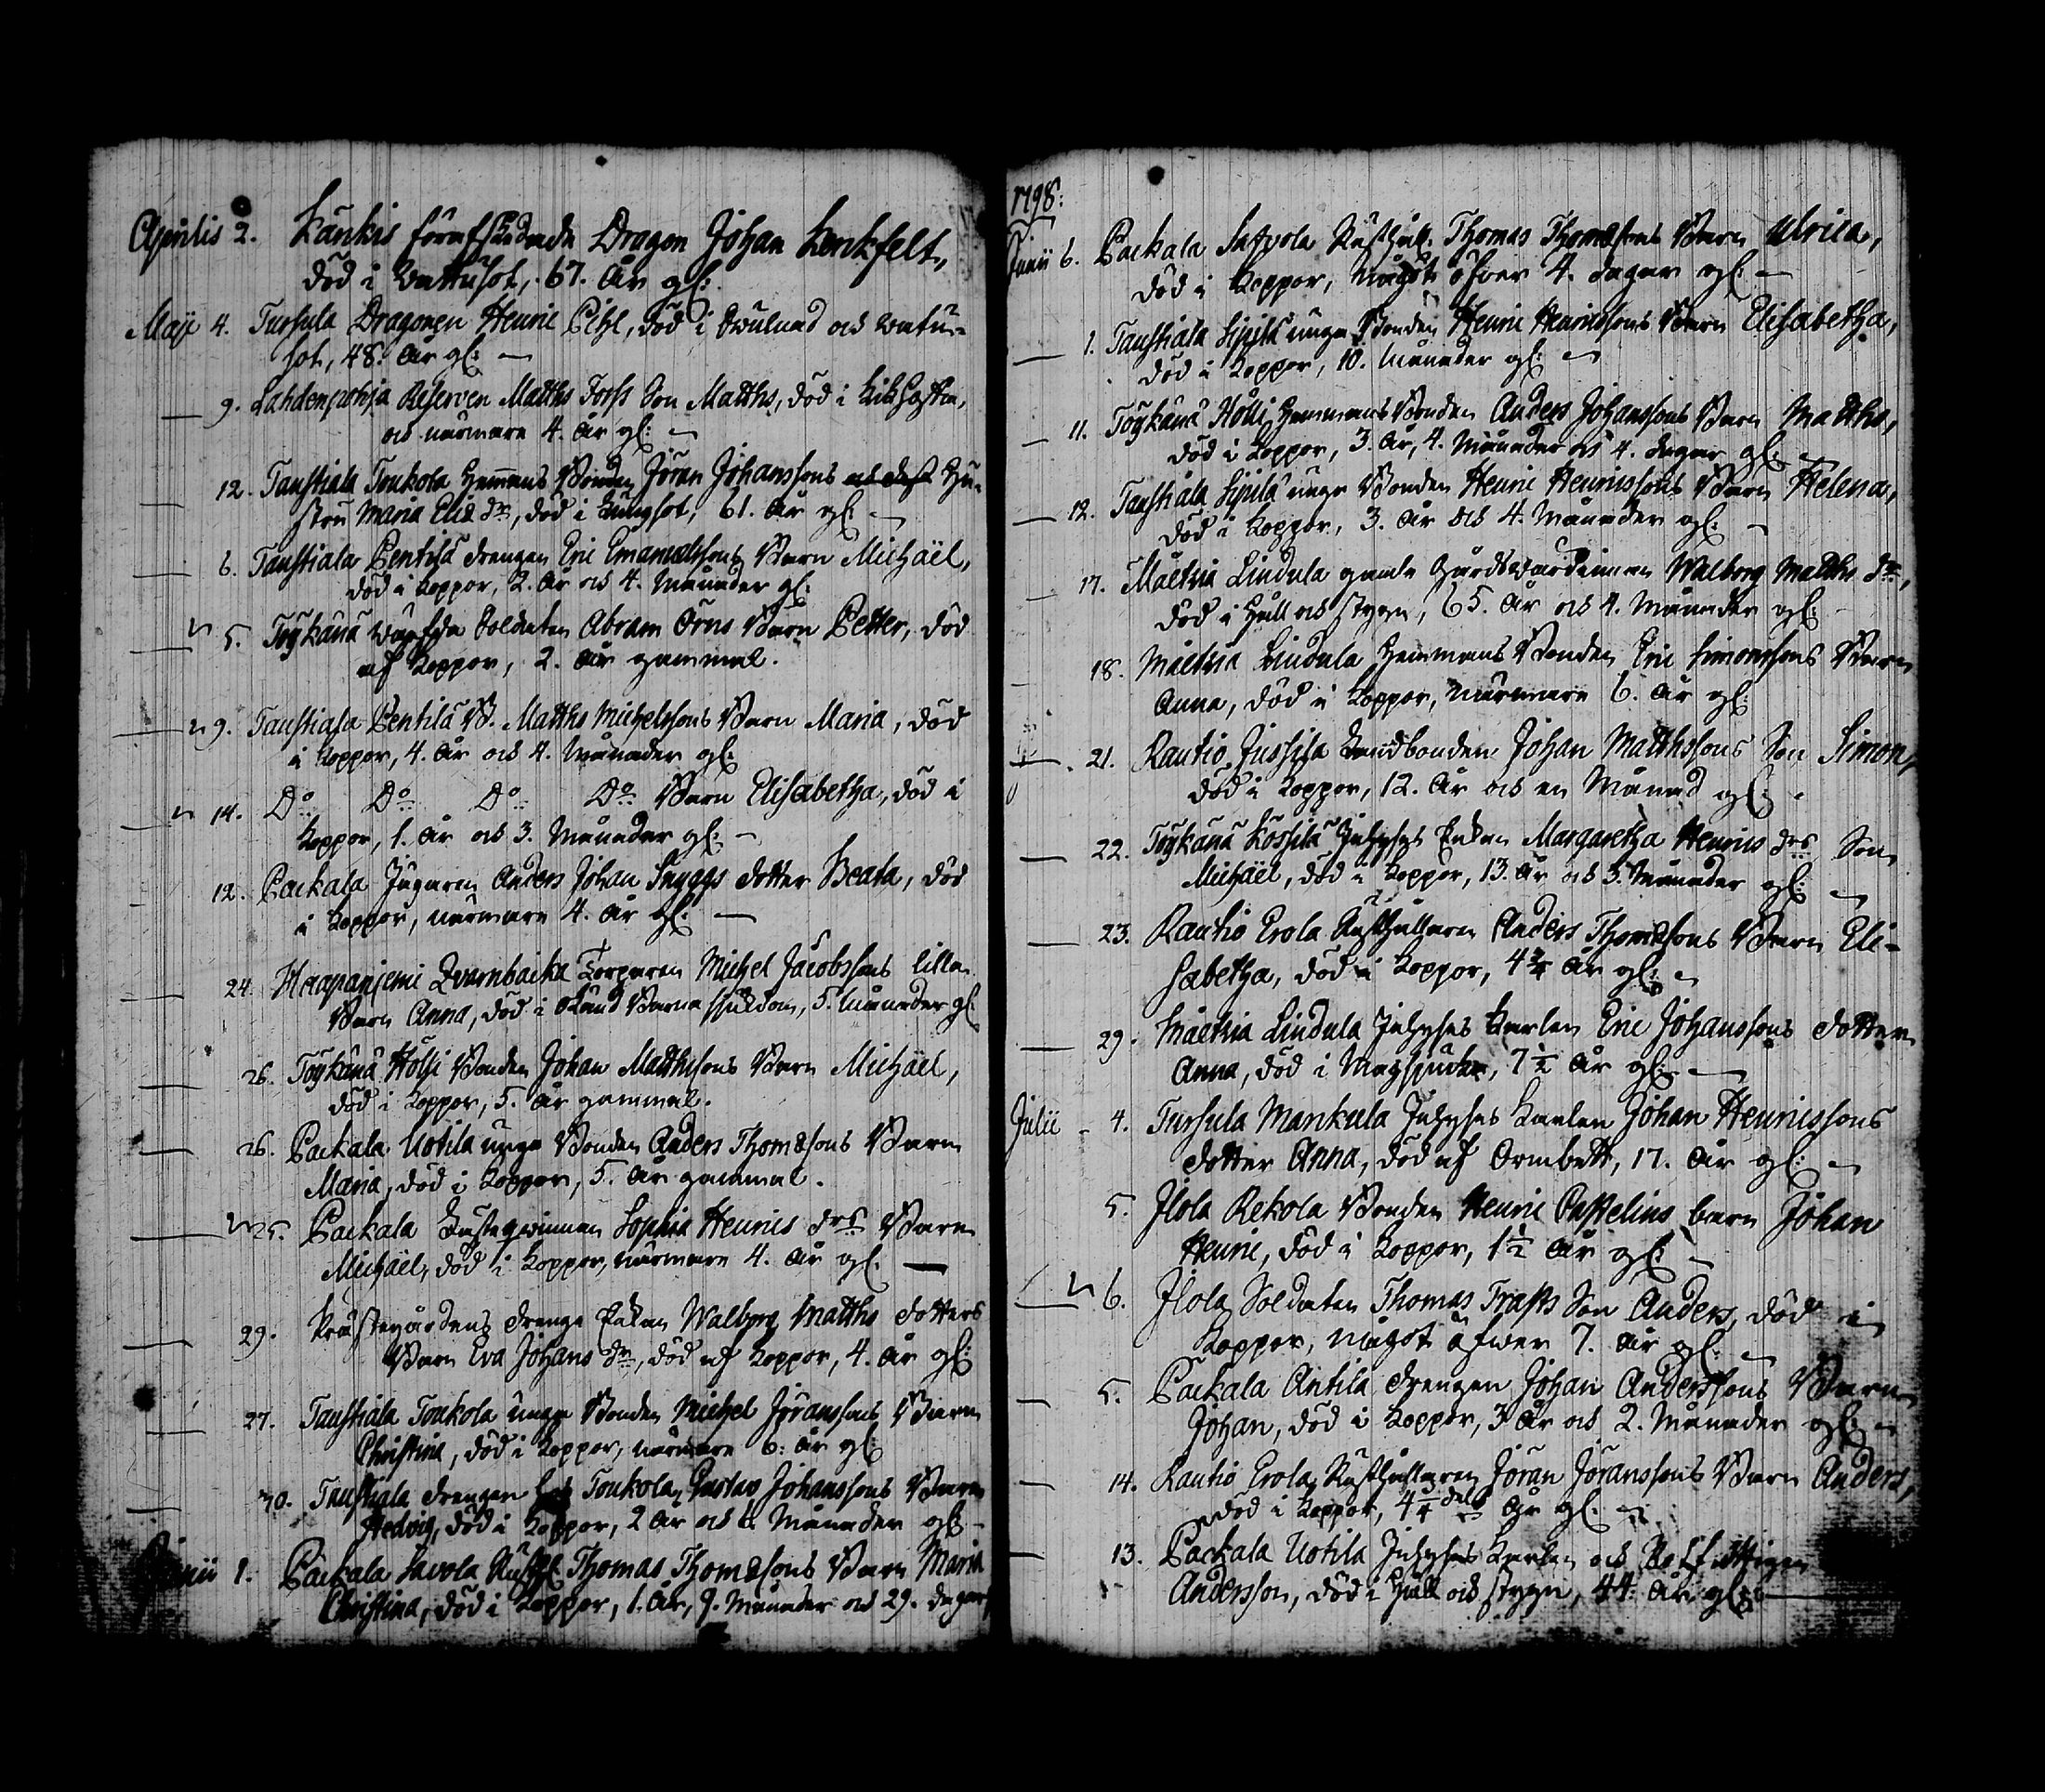 Aprilis 2. Kankis förafskedade Dragon Johan Lerckfelt,
död i Wattusot, 67. år gl:
Maji 4. Tursula Dragonen Henric Pihl, död i och watu-
sot, 48. år gl:
9. Lahdenpohja Reserven Matths Forss Son Matths, död i Kikhosta,
och närmare 4. år gl:
12. Taustiala Toukola Hemans Bonden Jöran Johanssons Hu-
stru Maria Eliæ dr, död i Lungsot, 61. år gl:
6. Taustiala Pentilä drengen Eric Emanuelssons Barn Michaël,
död i koppor, 2. år och 4. Månader gl:
5. Töykänä Soldaten Abram Örns Barn Petter, död
af koppor, 2. år gammal.
9. Taustiala Pentilä B. Matths Michelssons Barn Maria, död
i koppor, 4. år och 4. Månader gl:
14. Do Do Do Do Barn Elisabetha, död i
koppor, 1. år och 3. Månader gl:
12. Packala Jägaren Anders Johan Snyggs dotter Beata, död
i koppor, närmare 4. år gl:
24. Haapaniemi Qvarnbacka Torparen Michel Jacobssons lilla
Barn Anna, död i Barna sjukdom, 5. Månader gl:
26. Töykänä Hölsi Bonden Johan Matthssons Barn Michaël,
död i koppor, 5. år gammal.
26. Packala Uotila unge Bonden Anders Thomæsons Barn
Maria, död i koppor, 5. år gammal.
25. Packala Sophia Henrics drs Barn
Michaël, död i koppor, närmare 4. år gl.
29. Prästegårdens drenge Enkan Walborg Matths dotters
Barn Eva Johans dr, död af koppor, 4. år gl:
27. Taustiala Toukola unge Bonden Michel Jöranssons Barn
Christina, död i koppor, närmare 6. år gl:
30. Taustiala drengen Toukola, Gustav Johanssons Barn
Hedvig, död i koppor, 2 år och 6. Månader gl:
Junii 1. Packala Savola Rusth. Thomas Thomæsons Barn Maria
Christina, död i koppor, 1. år, 9. Månader och 29. dagar
1798:
Junii 6. Packala Rusthåll. Thomas Thomæsons Barn Ulrica,
död i koppor, något öfver 4. dagar gl:
1. Taustiala Sipilä unge Bonden Henric Henricssons Barn Elisabetha,
död i koppor, 10. Månader gl:
11. Töykänä Hölsi Hemmans Bonden Anders Johanssons Barn Matths,
död i koppor, 3. år, 4. Månader och 4. dagar gl:
12. Taustiala Sipilä unge Bonden Henric Henricssons Barn Helena,
död i koppor, 3. år och 4. Månader gl:
17. Mäetzia Lindula gamla Gårdswärdinnan Walborg Matths dr,
död i Håll och styng, 65. år och 4. Månader gl:
18. Mäetzia Lindula Hemmans Bonden Eric Simonssons Barn
Anna, död i koppor, närmare 6. år gl:
21. Rautio Jussila Landbonden Johan Matthssons Son Simon,
död i koppor, 12. år och en Månad gl:
22. Töykänä Kossilä Inhyses Enkan Margaretha Henrics drs Son
Michaël, död i koppor, 13. år och 5. Månader gl:
23. Rautio Erola Rusthållaren Anders Thomæsons Barn Eli-
sabetha, död i koppor, 4 3/4 år gl:
29. Mäetzia Lindula Inhyses Karlen Eric Johanssons dotter
Anna, död i Magsjuka, 7 1/2 år gl:
Julii 4. Tursula Mankula Inhyses Karlen Johan Henricssons
dotter Anna, död af Ormbett, 17. år gl:
5. Jlola Rekola Bonden Henric Castelins barn Johan
Henric, död i koppor, 1 1/2 år gl:
6. Jlola Soldaten Thomas Trasts Son Anders, död i
koppor, något öfwer 7. år gl:
5. Packala Antila drengen Johan Anderssons Barn
Johan, död i koppor, 3 år och 2. Månader gl:
14. Rautio Erola, Rusthållaren Jöran Jöranssons Barn Anders,
död i koppor, 4 1/4 dels år gl:
13. Packala Uotila Inhyses Karlen och
Andersson, död i Håll och styng, 44. år gl: